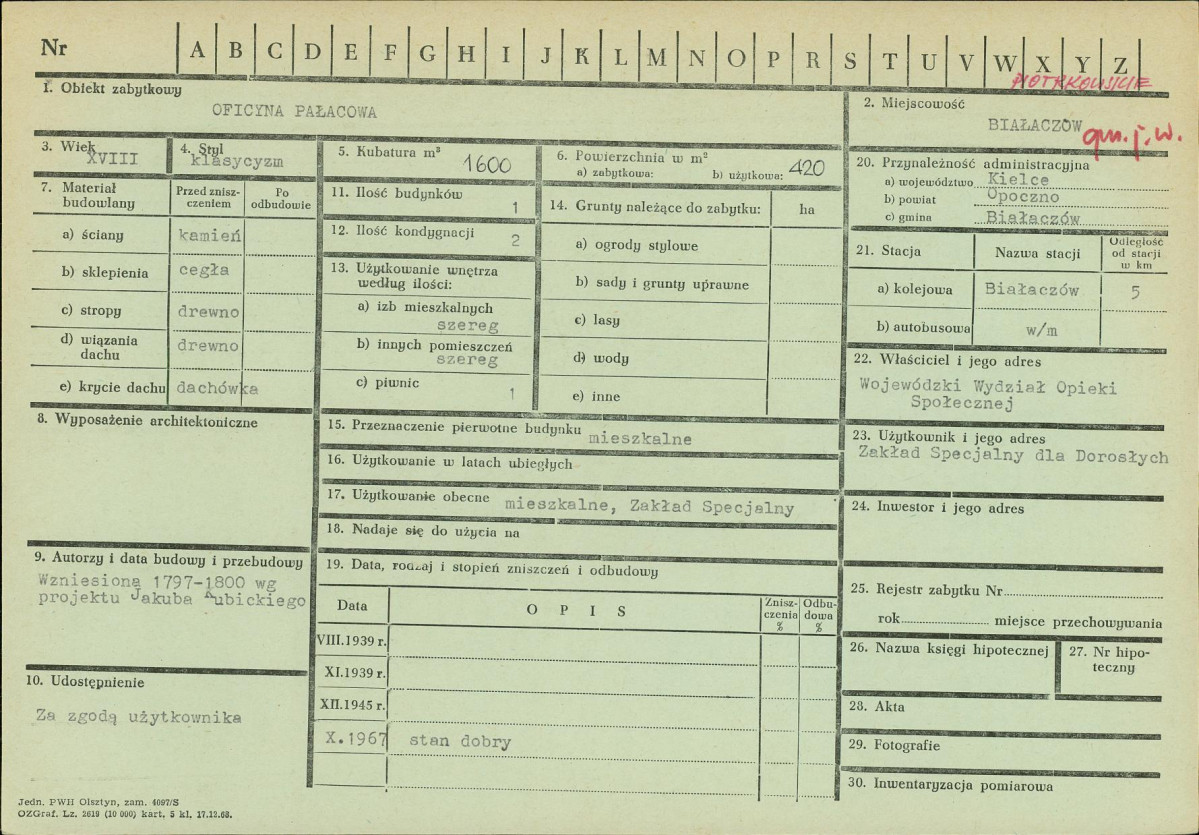 Nr
A B C D E F G H I J K L M N O P R S T U V W X Y Z
PIOTRKOWSKIE
1. Obiekt zabytkowy
OFICYNA PAŁACOWA
2. Miejscowość
BIAŁACZÓW
gm. j. w.
3. Wiek
XVIII
4. Styl
klasycyzm
5. Kubatura m³
1600
6. Powierzchnia w m²
a) zabytkowa: b) użytkowa: 420
7. Materiał budowlany
Przed zniszczeniem
Po odbudowie
a) ściany kamień
b) sklepienia cegła
c) stropy drewno
d) wiązania dachu drewno
e) krycie dachu dachówka
8. Wyposażenie architektoniczne
9. Autorzy i data budowy i przebudowy
Wzniesiona 1797-1800 wg
projektu Jakuba Kubickiego
10. Udostępnienie
Za zgodą użytkownika
11. Ilość budynków
1
12. Ilość kondygnacji
2
13. Użytkowanie wnętrza
według ilości:
a) izb mieszkalnych
szereg
b) innych pomieszczeń
szereg
c) piwnic
1
14. Grunty należące do zabytku: ha
a) ogrody stylowe
b) sady i grunty uprawne
c) lasy
d) wody
e) inne
15. Przeznaczenie pierwotne budynku mieszkalne
16. Użytkowanie w latach ubiegłych
17. Użytkowanie obecne mieszkalne, Zakład Specjalny
18. Nadaje się do użycia na
19. Data, rodzaj i stopień zniszczeń i odbudowy
Data OPIS Zniszczenia % Odbudowa %
VIII.1939 r.
XI.1939 r.
XII.1945 r.
X.1967 stan dobry
20. Przynależność administracyjna
a) województwo Kielce
b) powiat Opoczno
c) gmina Białaczów
21. Stacja Nazwa stacji Odległość od stacji w km
a) kolejowa Białaczów 5
b) autobusowa w/m
22. Właściciel i jego adres
Wojewódzki Wydział Opieki
Społecznej
23. Użytkownik i jego adres
Zakład Specjalny dla Dorosłych
24. Inwestor i jego adres
25. Rejestr zabytku Nr
rok miejsce przechowywania
26. Nazwa księgi hipotecznej
27. Nr hipoteczny
28. Akta
29. Fotografie
30. Inwentaryzacja pomiarowa
Jedn. PWH Olsztyn, zam. 4097/S
OZGraf. Lz. 2619 (10 000) kart. 5 kl. 17.12.68.